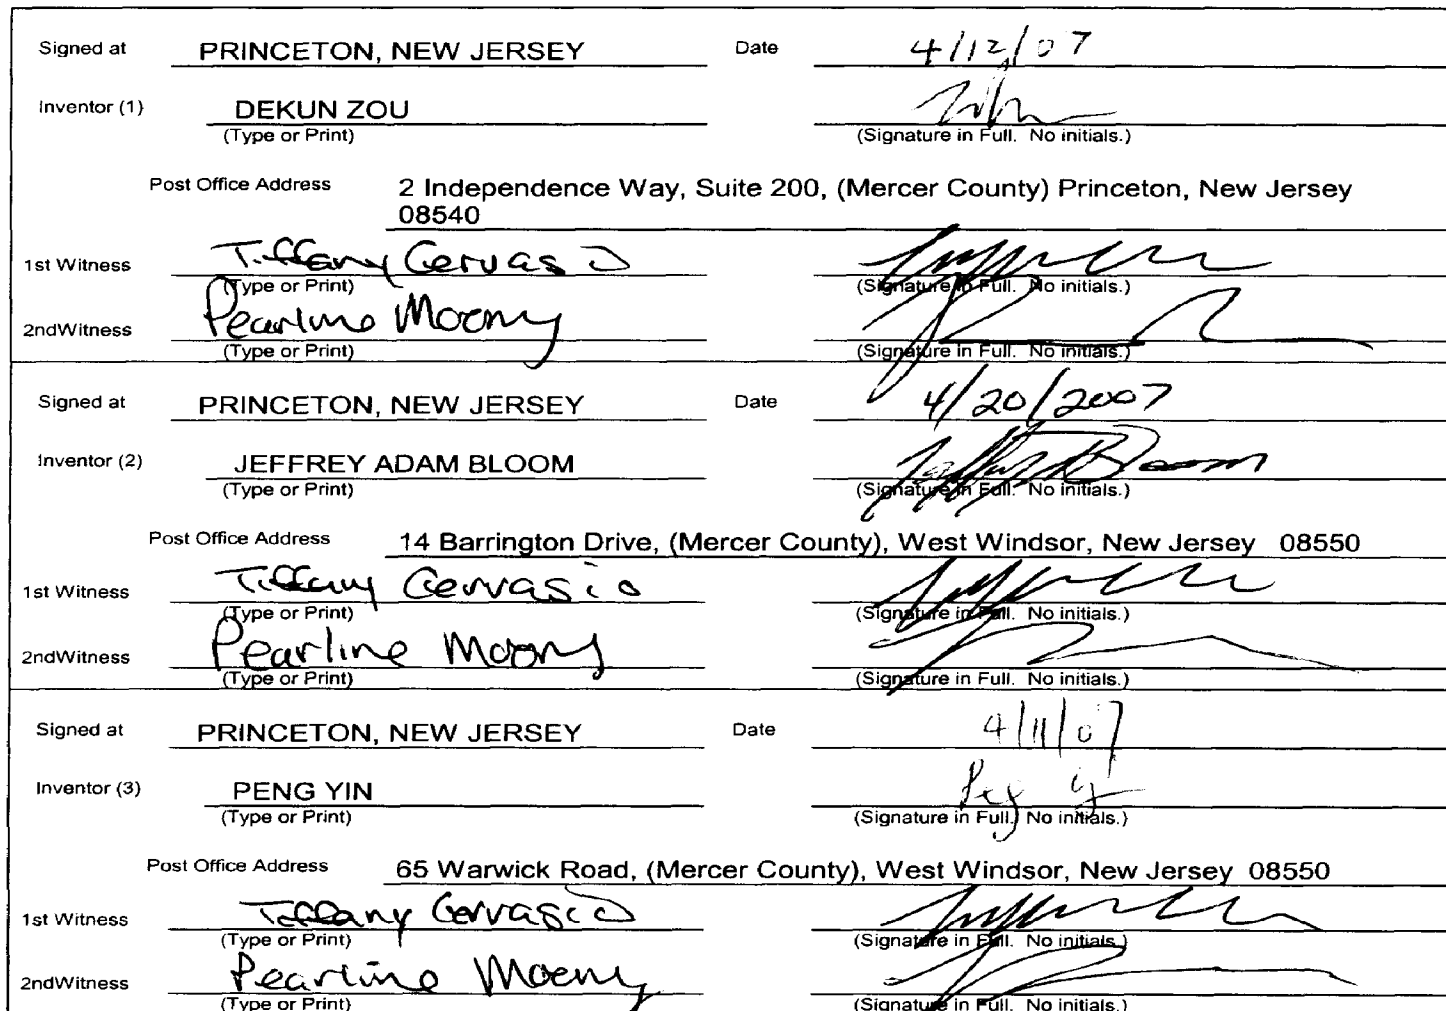 Signed at PRINCETON, NEW JERSEY Date 4/12/07
Inventor (1) DEKUN ZOU
(Type or Print) (Signature in Full. No initials.)
Post Office Address 2 Independence Way, Suite 200, (Mercer County) Princeton, New Jersey
08540
1st Witness Tiffany Gervasio
(Type or Print) (Signature in Full. No initials.)
2ndWitness Pearline
(Type or Print) (Signature in Full. No initials.)
Signed at PRINCETON, NEW JERSEY Date 4/20/2007
Inventor (2) JEFFREY ADAM BLOOM Jeffrey A Bloom
(Type or Print) (Signature in Full. No initials.)
Post Office Address 14 Barrington Drive, (Mercer County), West Windsor, New Jersey 08550
1st Witness Tiffany Gervasio
(Type or Print) (Signature in Full. No initials.)
2ndWitness Pearline
(Type or Print) (Signature in Full. No initials.)
Signed at PRINCETON, NEW JERSEY Date 4/11/07
Inventor (3) PENG YIN
(Type or Print) (Signature in Full. No initials.)
Post Office Address 65 Warwick Road, (Mercer County), West Windsor, New Jersey 08550
1st Witness Tiffany Gervasio
(Type or Print) (Signature in Full. No initials.)
2ndWitness Pearline
(Type or Print) (Signature in Full. No initials.)